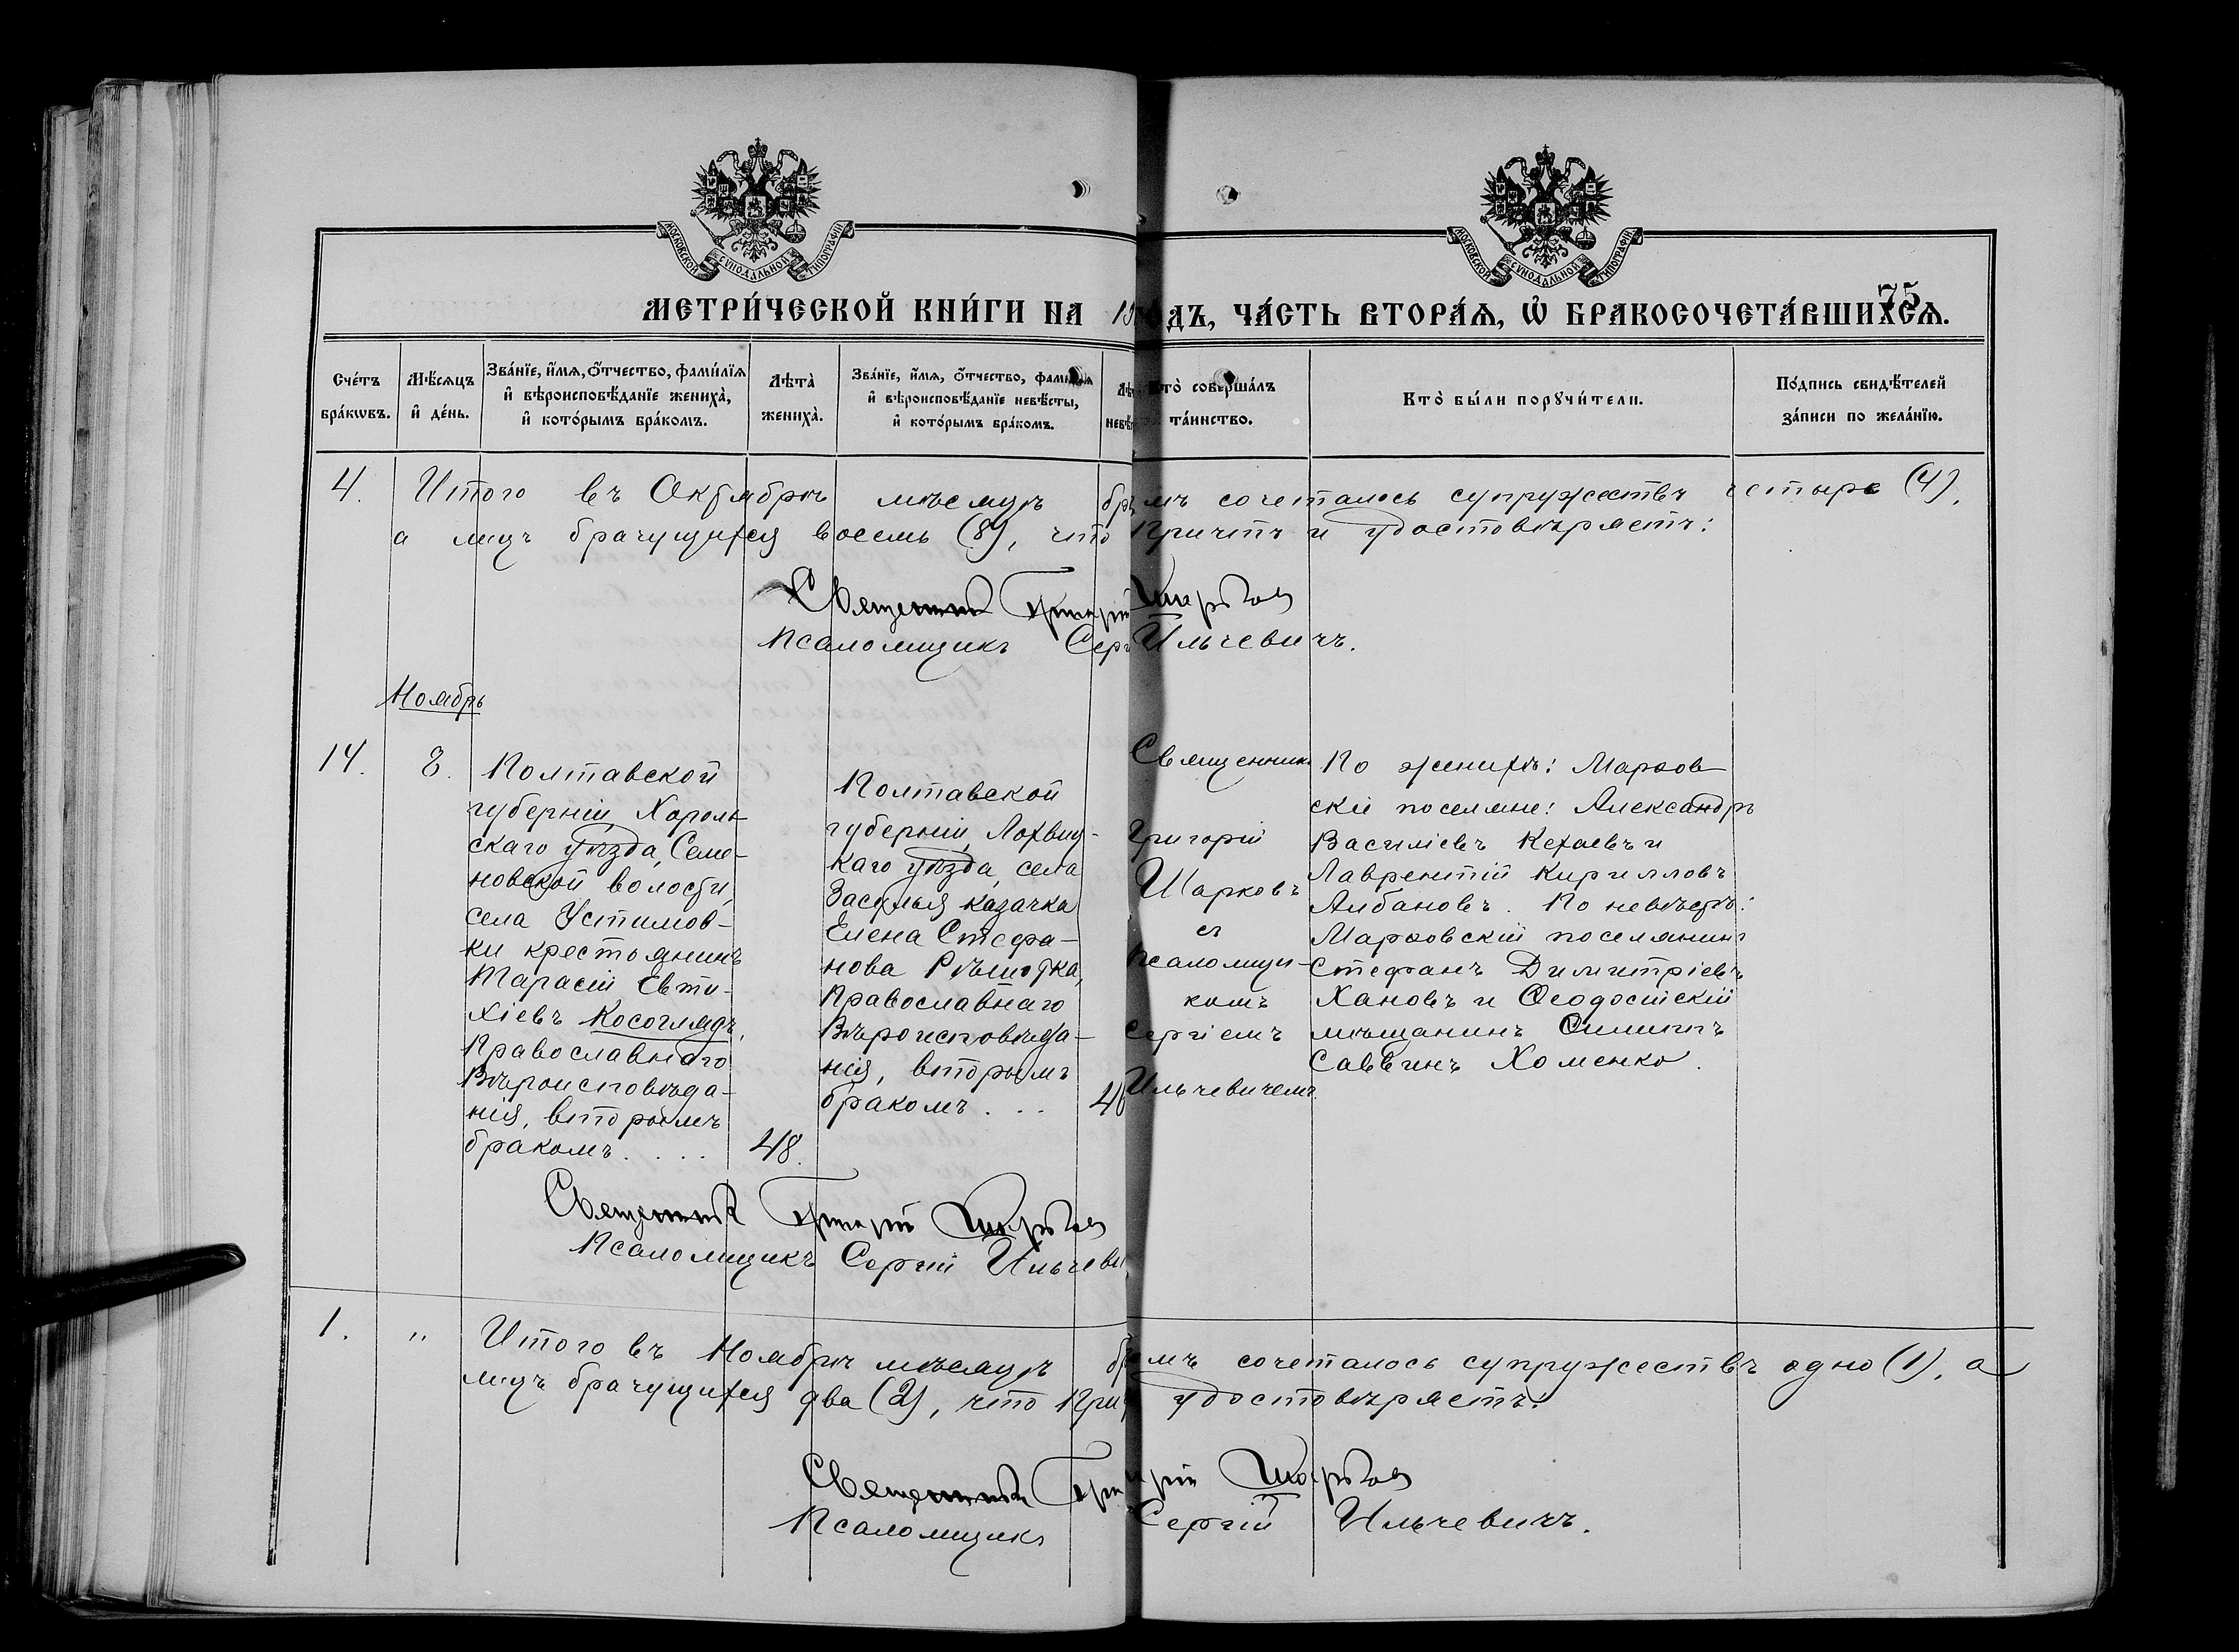 МОСКОВСКОЙ СУНОДАЛЬНОЙ ТИПОГРАФІИ
МОСКОВСКОЙ СУНОДАЛЬНОЙ ТИПОГРАФІИ
75
МЕТРИ́ЧЕСКОЙ КНИ́ГИ НА 19 ГОДЪ, ЧА́СТЬ ВТОРА́Ѧ, Ѡ БРАКОСОЧЕТА́ВШИХСѦ.
Сче́тъ
бра́кѡвъ.
Мѣ́сѧцъ
и҆ де́нь.
Зва́нїе, и҆́мѧ, ѻ҆́тчество, фами́лїѧ
и҆ вѣроисповѣ́данїе жениха̀,
и҆ кото́рымъ бра́комъ.
Лѣта̀
жениха̀.
Зва́нїе, и҆́мѧ, ѻ҆́тчество, фамилїѧ
и҆ вѣроисповѣ́данїе невѣ́сты,
и҆ кото́рымъ бра́комъ.
Лѣ
невѣ
Кто̀ соверша́лъ
та́инство.
Кто̀ бы́ли порꙋчи́тели.
По́дпись свидѣ́телей
за́писи по жела́нїю.
4. Итого въ Октябрѣ мѣсяцѣ бракомъ сочеталось супружествъ четыре (4),
а лицъ брачущихся восемь (8), что Причтъ и удостовѣряетъ:
Священникъ Григорій Шарковъ
Псаломщикъ Сер Ильчевичъ.
Ноябрь
14. 8.
Полтавской
губерніи, Хороль-
скаго уѣзда, Семе-
новской волости,
села Устимов-
ки крестьянинъ
Тарасій Евти-
хіевъ Косоглядъ,
Православнаго
Вѣроисповѣда-
нія, вторымъ
бракомъ . . . . 48.
Полтавской
губерніи, Лохвиц-
каго уѣзда, села
Засулья казачка
Елена Стефа-
нова Рѣшотка,
Православнаго
Вѣроисповѣда-
нія, вторымъ
бракомъ . . . 40
Священникъ
Григорій
Шарковъ
съ
Псаломщи-
комъ
Сергіемъ
Ильчевичемъ.
По женихѣ: Марков
скіе поселяне: Александръ
Василіевъ Кехаевъ и
Лаврентій Кирилловъ
Албановъ. По невѣстѣ:
Марковскій поселянинъ
Стефанъ Димитріевъ
Хановъ и Ѳеодосійскій
мѣщанинъ Филиппъ
Саввинъ Хоменко.
Священникъ Григорій Шарковъ
Псаломщикъ Сергій Ильчеви
1. " Итого въ Ноябрѣ мѣсяцѣ бракомъ сочеталось супружествъ одно (1), а
лицъ брачущихся два (2), что При удостовѣряетъ:
Священникъ Григорій Шарковъ
Псаломщикъ Сергій Ильчевичъ.